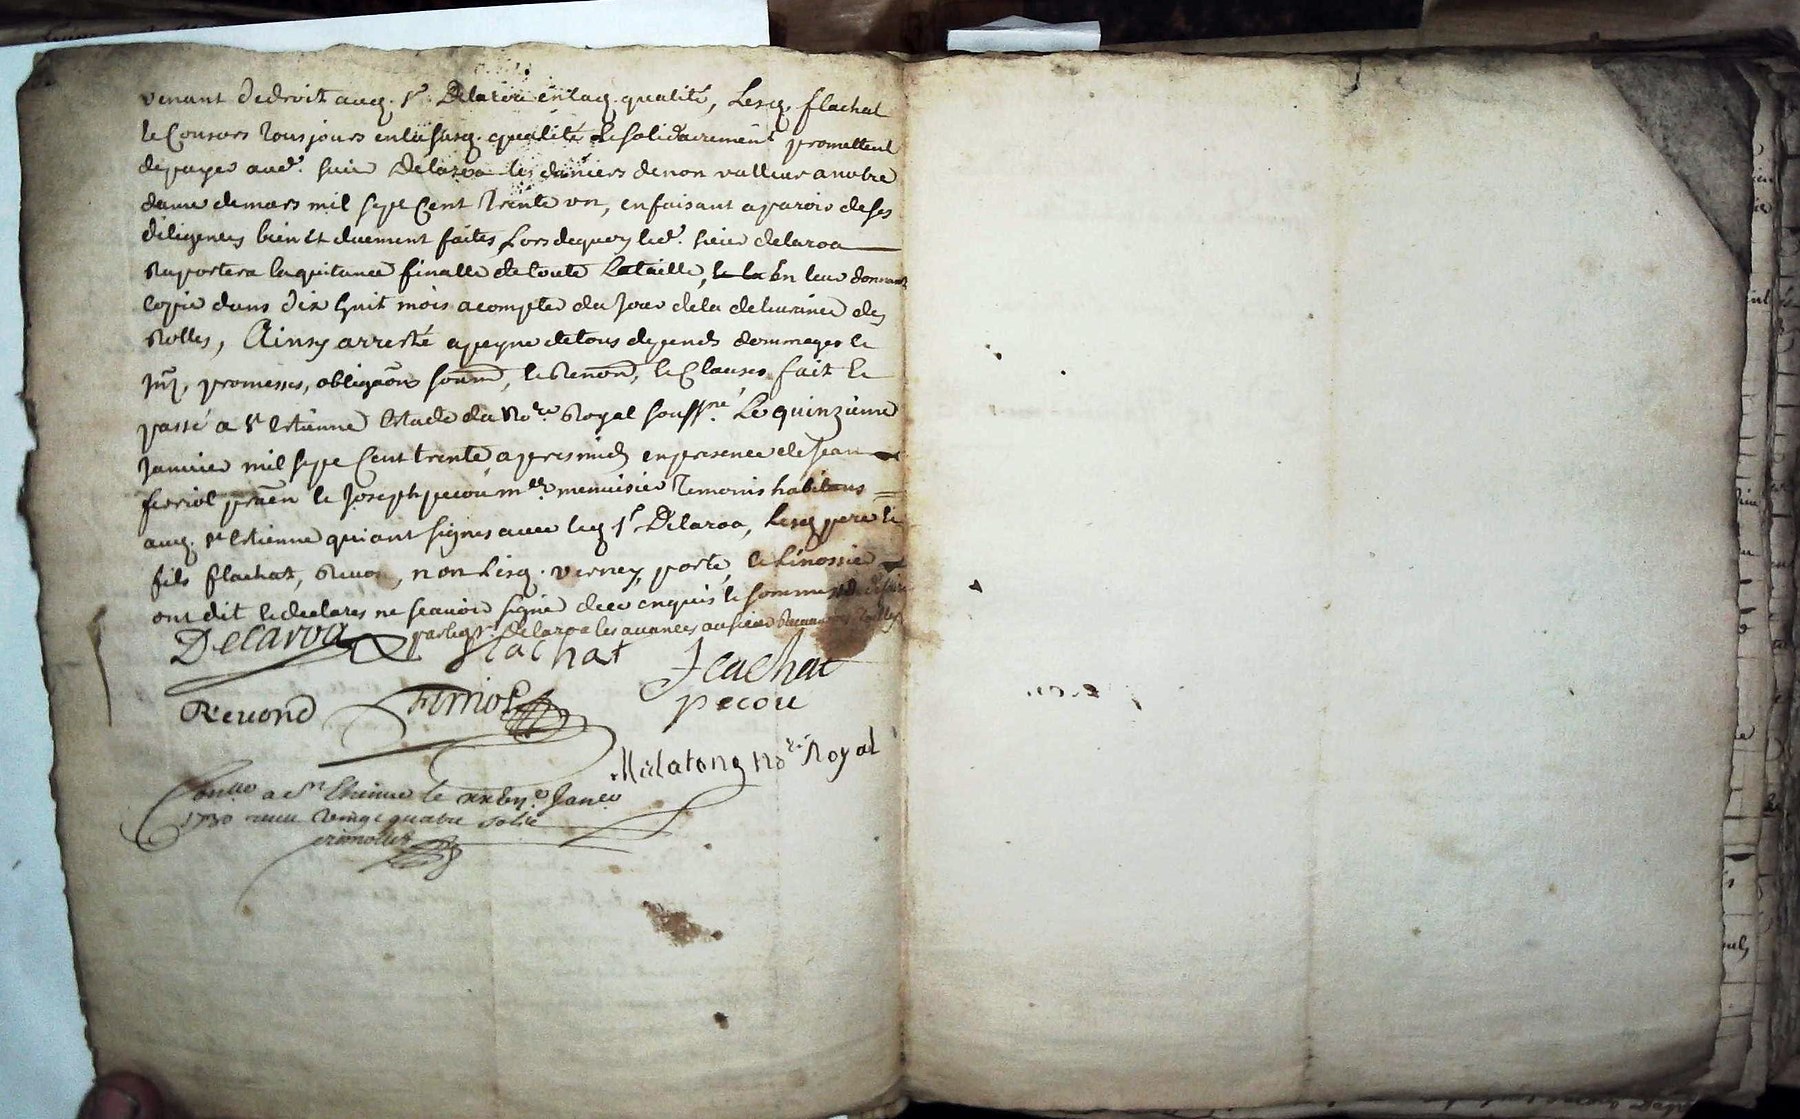 venant dedroit aug. Sr. Delaroa enlaq. qualité, Lesq. flachat
et Consors tousjours enla susq. qualité et solidairement promettent
depayer aud. sieur Delaroa les deniers de non valleur a notre
dame de mars mil sept Cent trente un, en faisant aparoir de ses
diligences bien et duement faites, Lors dequoy led. sieur delaroa
Raportera la quitance finalle de toute Lataille, en leur donnant
copie dans dix huit mois a compter du jour dela delivrance des
Rolles, Ainsy arresté a peyne de tous depends dommages et
promesses, obligaons soum, et Renon, et Clauses fait et
passé a St Estienne Estude du Nore Royal soussné Le quinzieme
Janvier mil sept Cent trente apres midy en presence de Jean
ferriol et Joseph pecou mer menuisier temoins habitans
aug. St Estienne qui ont signés avec leq Sr Delaroa, Lesq pere et
fils flachat, Revon, non Lesq. verney, porte, et Linossier
ont dit et declarés ne scavoir signer de ce enquis et sommés
par leq Sr. Delaroa les avances au sieur Receveur des Tailles
Delaroa Flachat Flachat
Revond Ferriol pecou
Malatong Nore Royal
Conllé a St Etienne le Janer
1730 receu vingt quatre sols